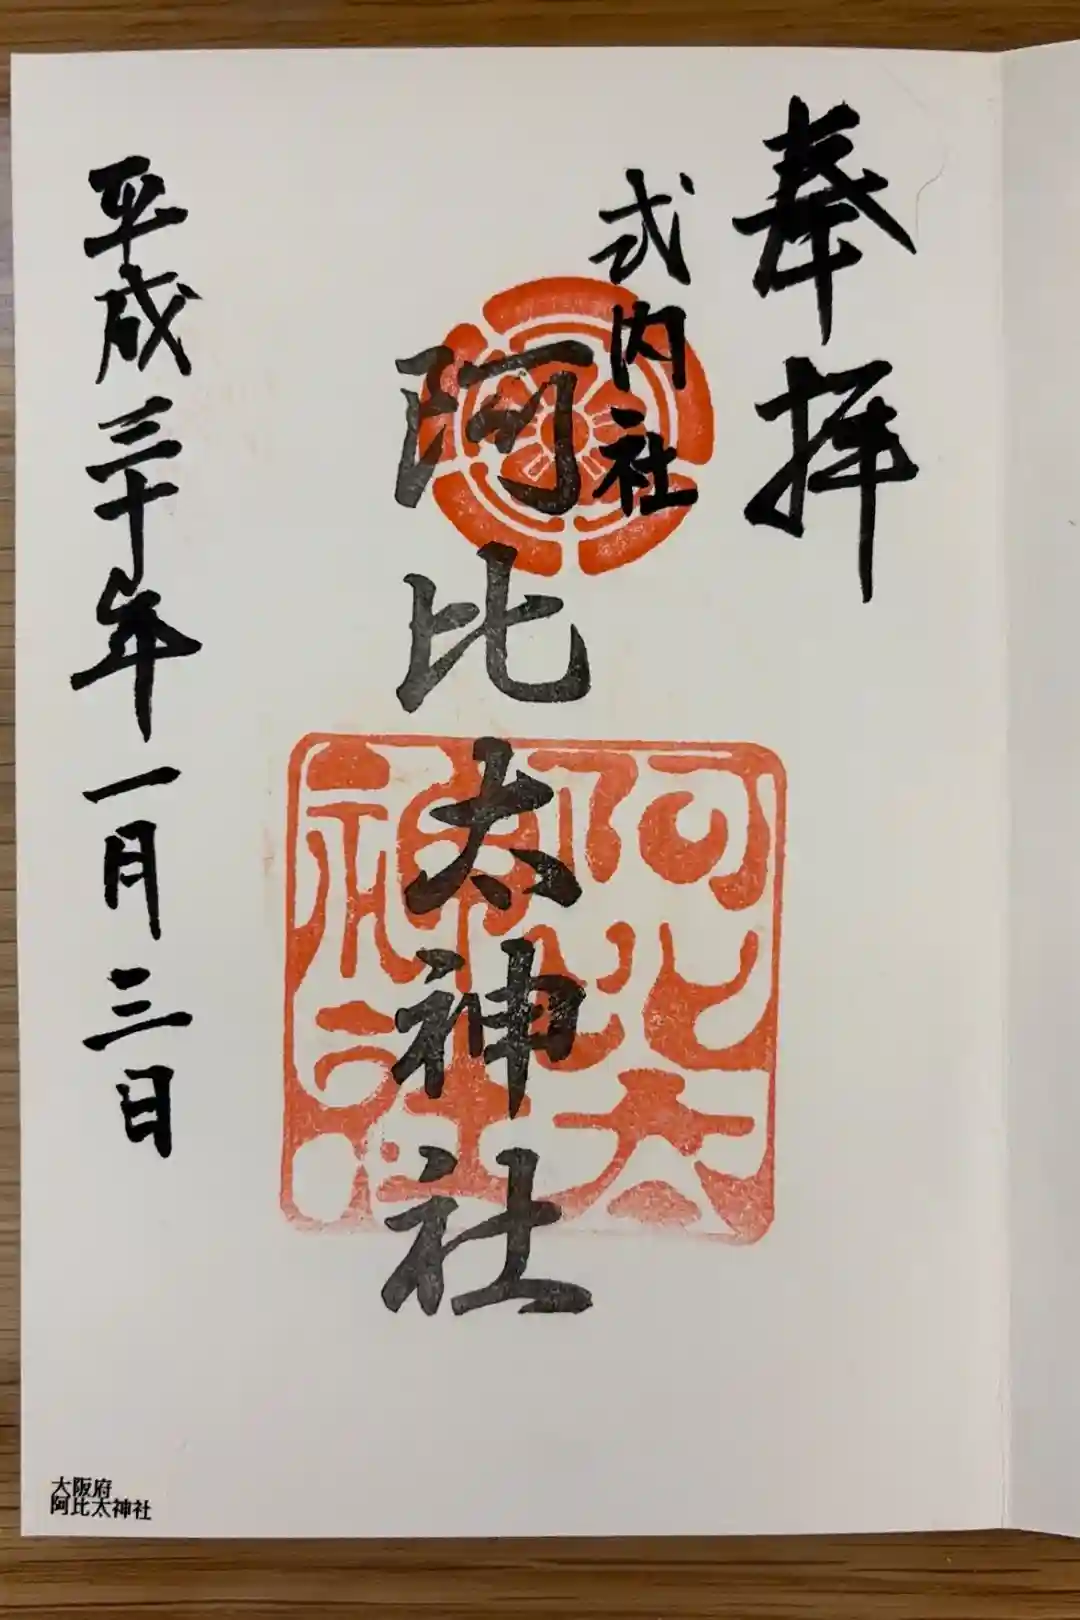 奉拝
式内社
阿比太神社
阿比太
神社
平成三十年一月三日
大阪府
阿比太神社